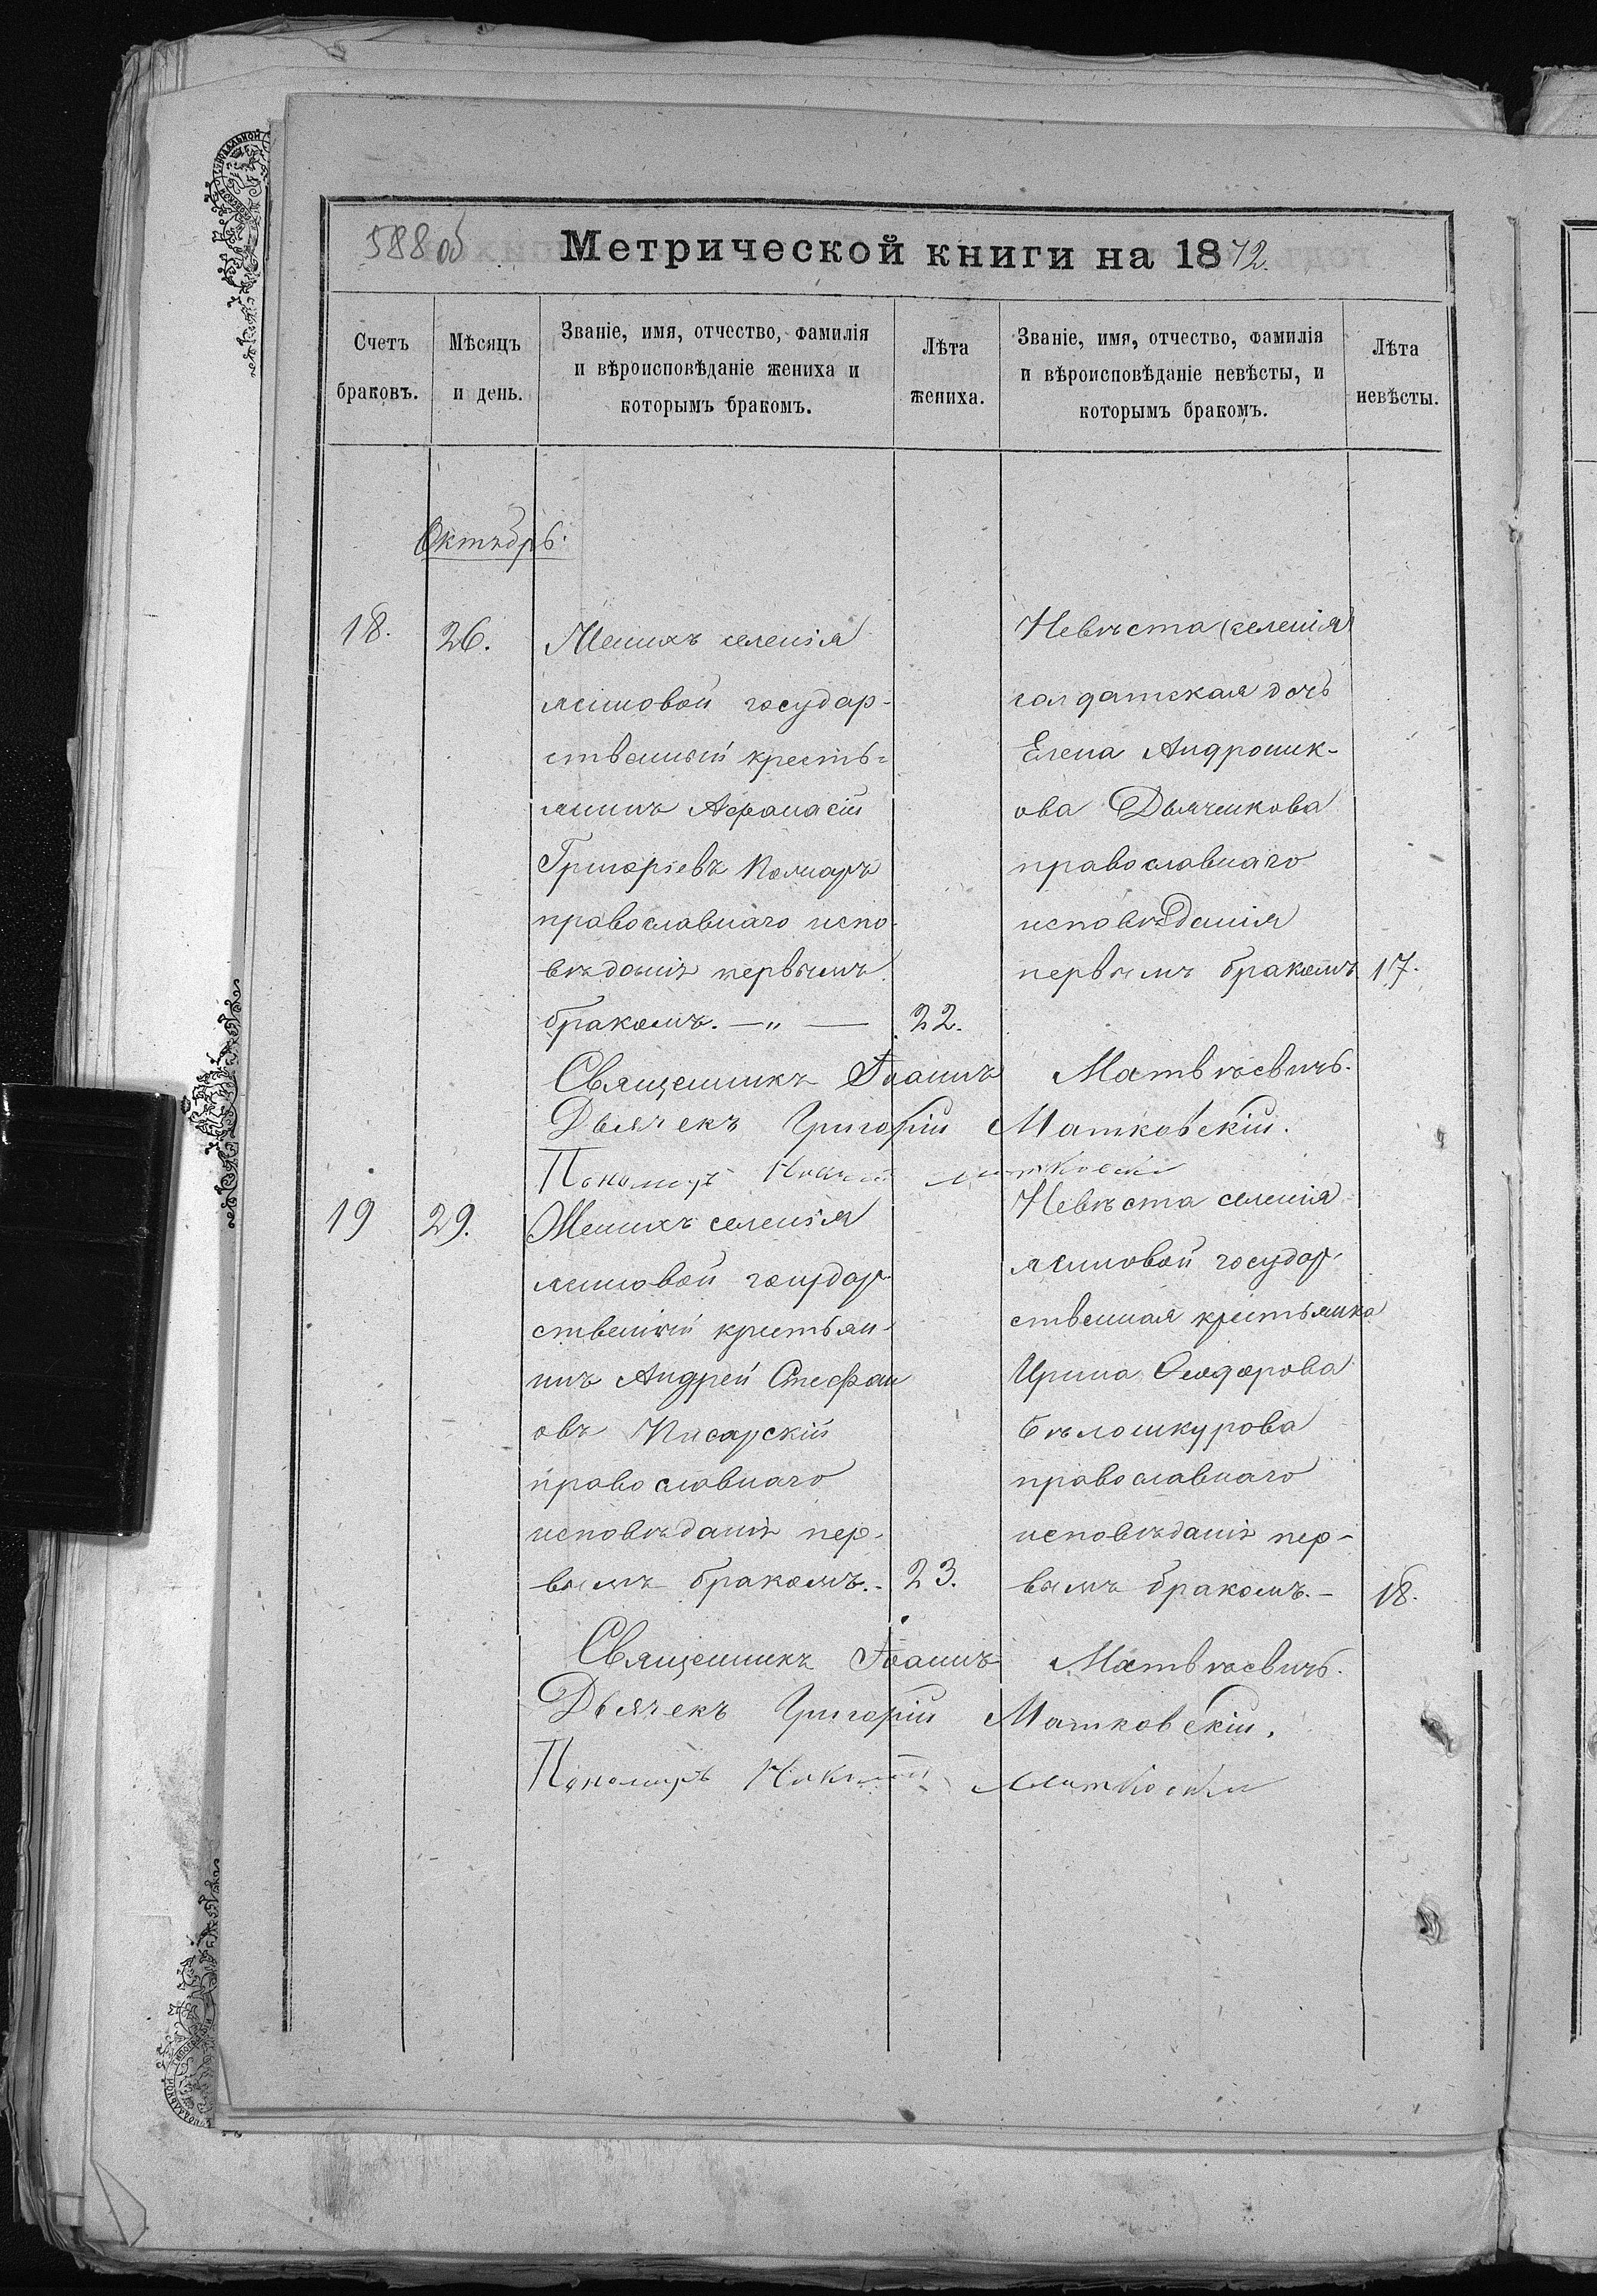 588 об
Метрической книги на 1872.
Счетъ браковъ.
Мѣсяцъ и день.
Званіе, имя, отчество, фамилія
и вѣроисповѣданіе жениха и
которымъ бракомъ.
Лѣта жениха.
Званіе, имя, отчество, фамилія
и вѣроисповѣданіе невѣсты, и
которымъ бракомъ.
Лѣта невѣсты.
Октябрь.
18.
26.
Женихъ селенія
ясиновой государ-
ственный кресть-
янинъ Афанасій
Григоріевъ Комаръ
православнаго испо-
вѣданія первымъ
бракомъ. —„—
22.
Невѣста селенія
салдатская дочь
Елена Андроник-
ова Дьяченкова
православнаго
исповѣданія
первымъ бракомъ
17.
Священникъ Іоаннъ Матвѣевичъ.
Дьячекъ Григорій Матковскій.
Пономарь
19
29.
Женихъ селенія
ясиновой государ-
ственный крестьян-
инъ Андрей Стефан
овъ Писарскій
православнаго
исповѣданія пер-
вымъ бракомъ.-
23.
Невѣста селенія
ясиновой государ-
ственная крестьянка
Ирина Феодорова
Бѣлошкурова
православнаго
исповѣданія пер-
вымъ бракомъ.-
18.
Священникъ Іоаннъ Матвѣевичъ.
Дьячекъ Григорій Матковскій.
Пономарь